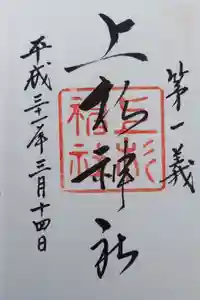 第一義
上杉神社
平成三十一年三月十四日